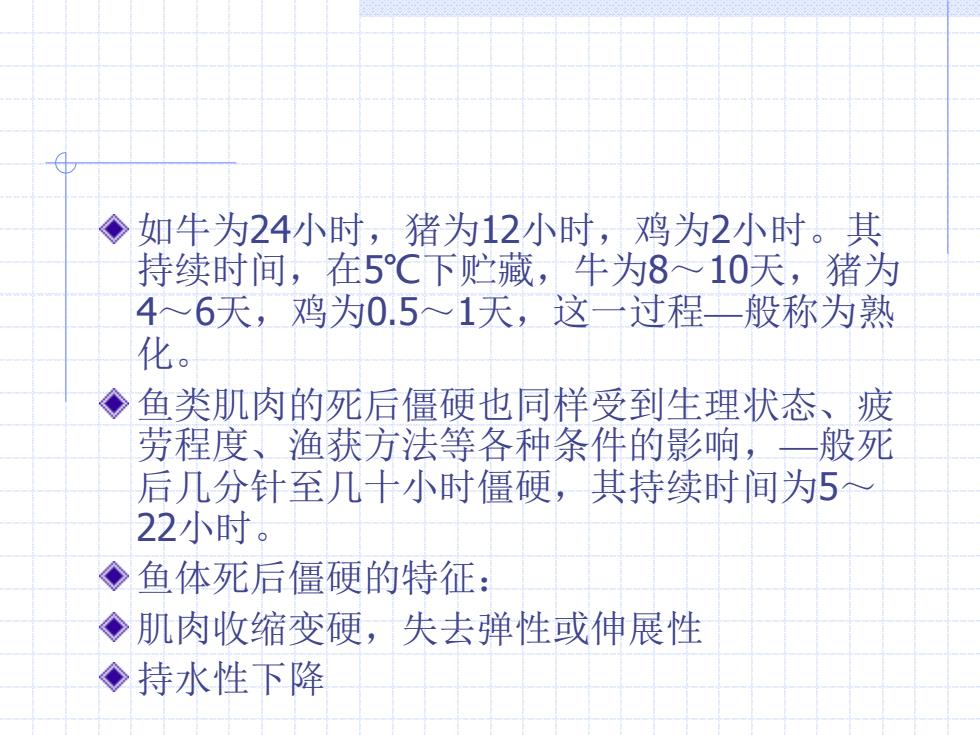 如牛为24小时，猪为12小时，鸡为2小时。其
持续时间，在5℃下贮藏，牛为8～10天，猪为
4～6天，鸡为0.5～1天，这一过程—般称为熟
化。
鱼类肌肉的死后僵硬也同样受到生理状态、疲
劳程度、渔获方法等各种条件的影响，—般死
后几分针至几十小时僵硬，其持续时间为5～
22小时。
鱼体死后僵硬的特征：
肌肉收缩变硬，失去弹性或伸展性
持水性下降